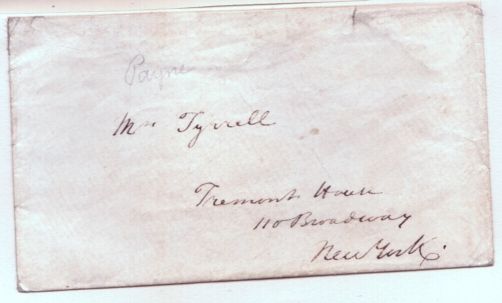 Payne
Mrs Tyrrell
Tremont House
110 Broadway
New York.